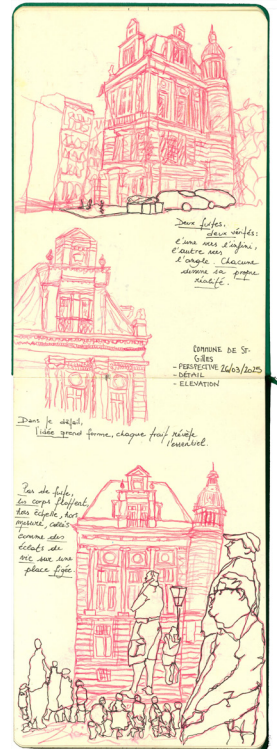 Deux fuites,
deux vérités:
l'une vers l'infini,
l'autre vers
l'angle. Chacune
dessine sa propre
réalité.
COMMUNE DE ST-
GILLES
- PERSPECTIVE 26/03/2025
- DÉTAIL
- ELEVATION
Dans le détail,
l'idée prend forme, chaque trait révèle
l'essentiel.
Pas de fuite,
les corps flottent,
hors échelle, hors
mesure, collés
comme des
éclats de
vie sur une
place figée.